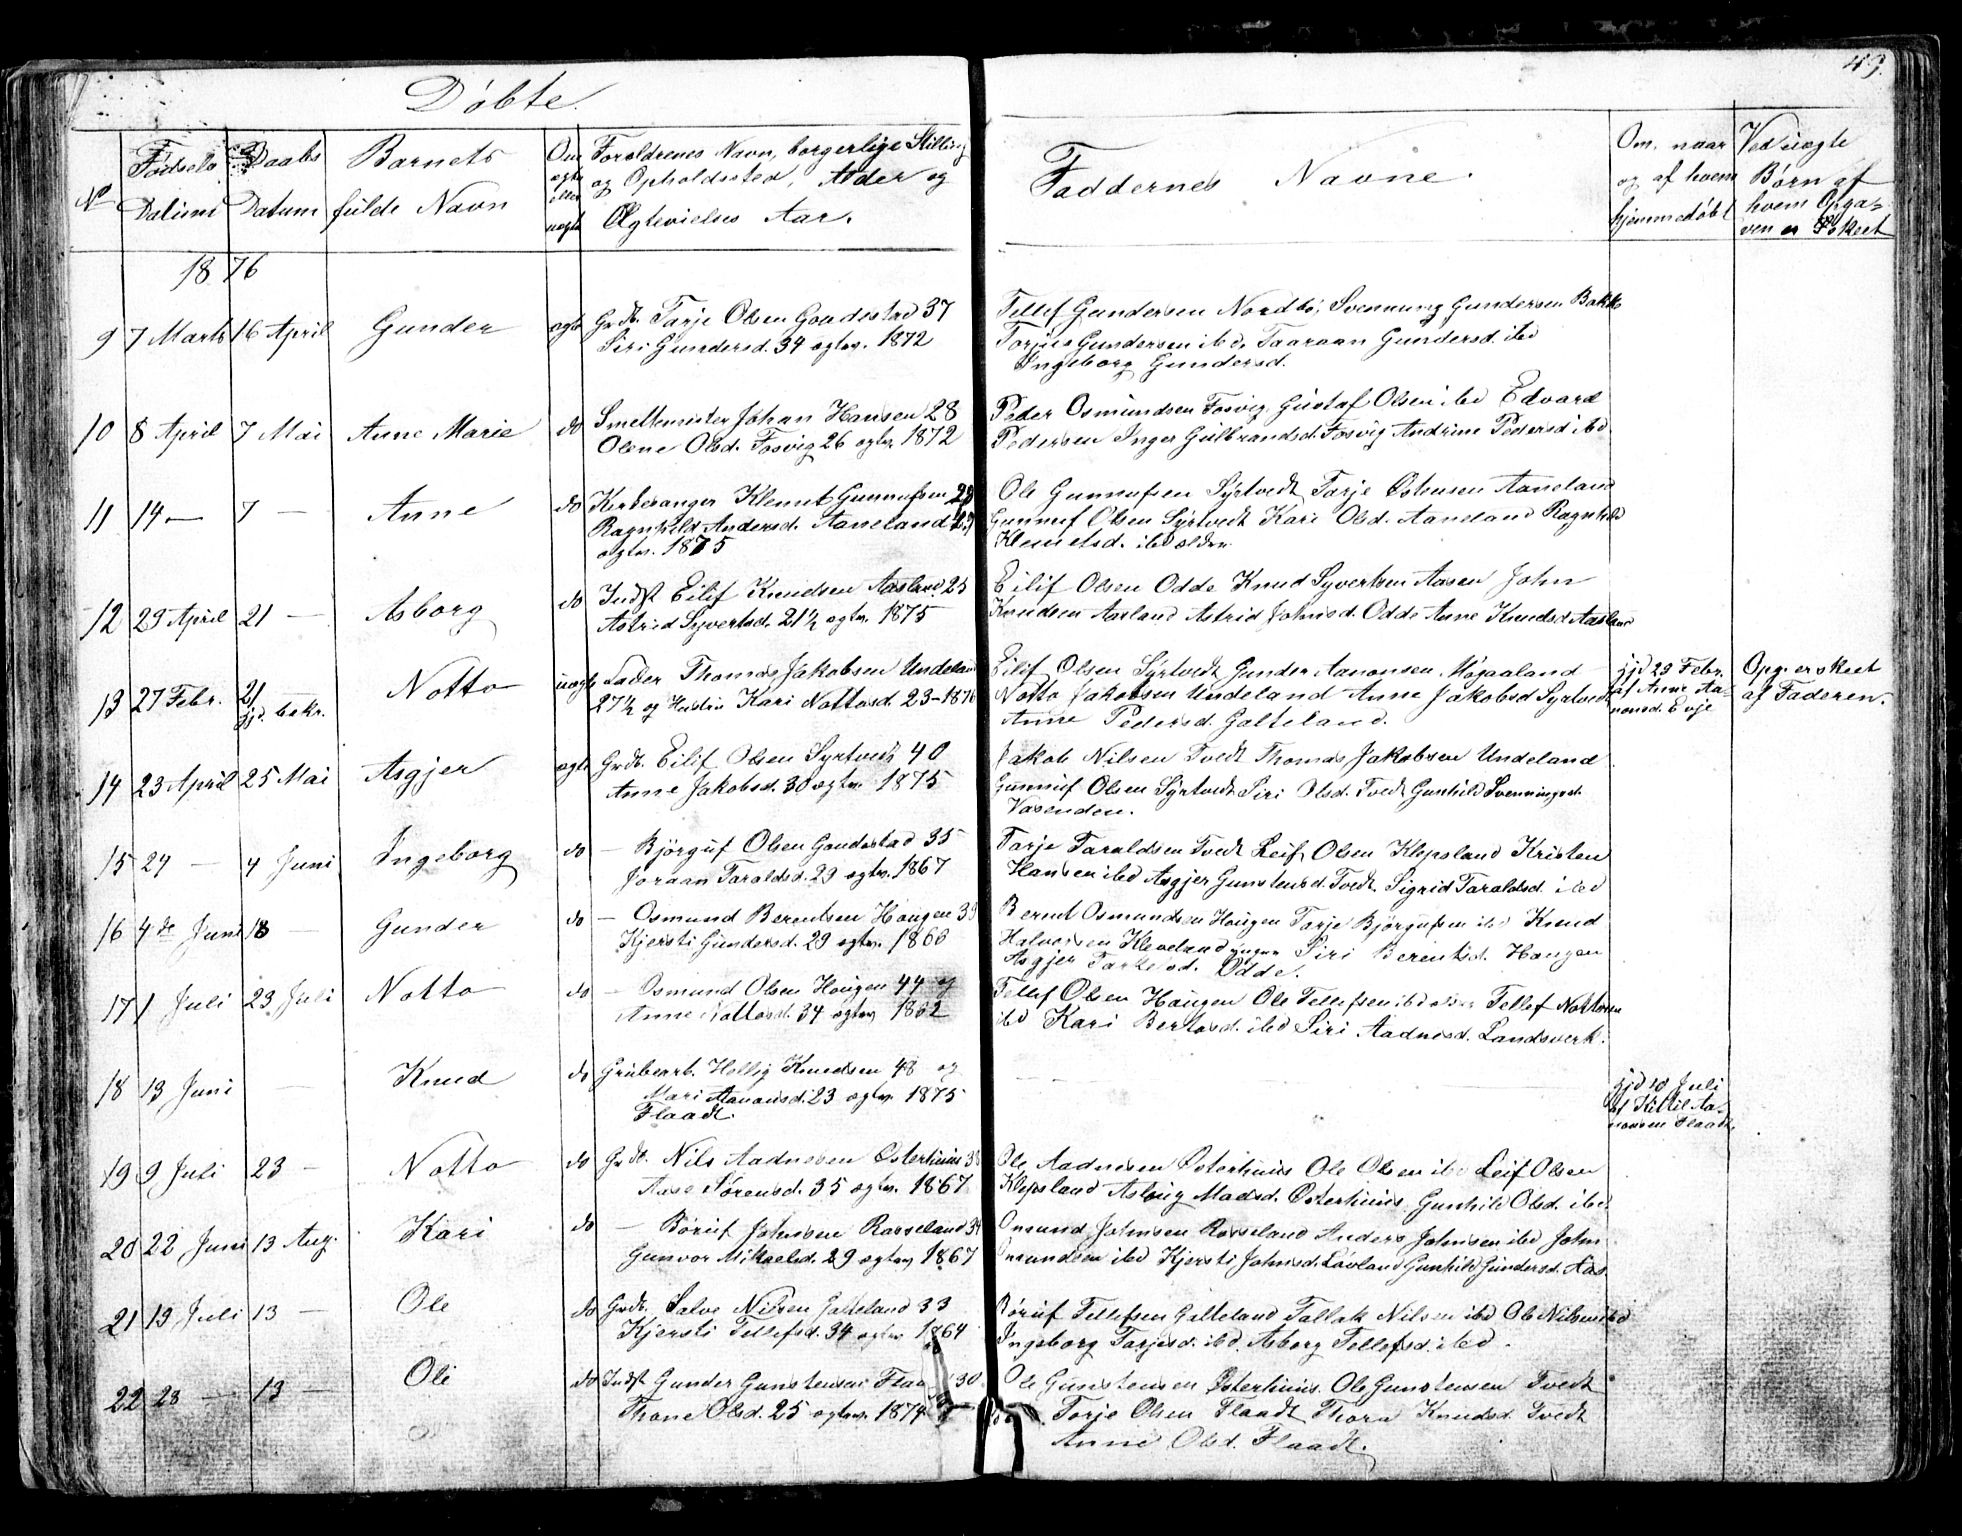 49.
Døbte.
No
Fødsels Datum
Daabs Datum
Barnets fulde Navn
Om ægte eller uægte
Forældrenes Navn, borgerlige Stilling
og Opholdssted, Alder og
Ægtevielses Aar.
Faddernes Navne.
Om, naar
og af hvem
hjemmedøbt
Ved uægte
Børn af
hvem Opga-
ven er skeet
1876
9 7 Marts 16 April Gunder ægte Grdb. Tarje Olsen Gaudestad 37
Siri Gundersd. 34 ægtev. 1872
Tellef Gundersen Nordbø, Svennung Gundersen Bakke
Torjus Gundersen ibd. Taaraan Gundersd. ibd
Ingeborg Gundersd.
10 8 April 7 Mai Anne Marie do Smeltemester Johan Hansen 28
Olene Olsd. Fosvig 26 ægtev. 1872
Peder Osmundsen Fosvig, Gustaf Olsen ibd Edvard
Pedersen Inger Gulbrandsd. Fosvig Andrine Pedersd ibd
11 14 — 7 — Anne do Kirkesanger Klemet Gunnufsen 28
Ragnhild Andersd. Aaneland
ægtev. 1875
Ole Gunnufsen Syrtvedt Tarje Aaneland
Gunnuf Olsen Syrtvedt Kari Olsd. Aaneland Ragnhild
Klemetsd. ibd ældre
12 29 April 21 — Asborg do Indst Eilif Knudsen Aasland 25
Astrid Syvertsd. 21½ ægtev. 1875
Eilif Olsen Odde Knud Syvertsen Aasen John
Knudsen Aasland Astrid Johnsd. Odde Anne Knudsd Aasland
13 27 Febr. 21/ hjd. bekr. Notto uægte Thomas Jakobsen Undeland
27½ og Kari Nottosd. 23 - 1876
Eilif Olsen Syrtvedt Gunder Aanonsen Høgaaland
Notto Jakobsen Undeland Anne Jakobsd Syrtvedt
Anne Pedersd. Galteland.
hjd 29 Febr.
af Anne Aa-
nonsd. Evje
Opg. er skeet
af Faderen.
14 23 April 25 Mai Asgjer ægte Grdb. Eilif Olsen Syrtvedt 40
Anne Jakobsd. 30 ægtev 1875
Jakob Nilsen Tvedt Thomas Jakobsen Undeland
Gunnuf Olsen Syrtvedt Siri Olsd. Tvedt Gunhild Svenningsd.
Vasenden.
15 24 — 4 Juni Ingeborg do — Bjørguf Olsen Gaudestad 35
Joraan Taraldsd. 29 ægtev. 1867
Tarje Taraldsen Tvedt Leif Olsen Klepsland Kristen
Hansen ibd Asgjer Gunstensd. Tvedt Sigrid Taraldsd. ibd
16 4de Juni 18 — Gunder do — Osmund Berentsen Haugen 39
Kjersti Gundersd. 29 ægtev. 1866
Bernt Osmundsen Haugen Tarje Bjørgufsen ibd Knud
Halvorsen Kleveland yngre Siri Berentsd. Haugen
Asgjer Tarkelsd. Odde.
17 1 Juli 23 Juli Notto do — Osmund Olsen Haugen 44 og
Anne Nottosd. 34 ægtev 1862
Tellef Olsen Haugen Ole Tellefsen ibd Tellef Nottosen
ibd Kari Bertosd. ibd Siri Aadnesd. Landsverk.
18 13 Juni — Knud do Grubearb. Hellig Knudsen 48 og
Mari Aanonsd. 23 ægtev. 1875
Flaadt.
hjd 10 Juli
af Kittil Aa-
nonsen Flaadt
19 9 Juli 23 — Notto do Grdb. Nils Aadnesen Østerhuus 38
Aase Sørensd. 35 ægtev. 1867
Ole Aadnesen Østerhuus Ole Olsen ibd Leif Olsen
Klepsland Aslaug Madsd. Østerhuus, Gunhild Olsd. ibd
20 22 Juni 13 Aug. Kari do — Børuf Johnsen Rosseland 34
Gunvor Mikaelsd. 29 ægtev 1867
Omund Johnsen Rosseland Anders Johnsen ibd John
Omundsen ibd Kjersti Johnsd. Løvland Gunhild Gundersd. Aas
21 19 Juli 13 — Ole do Grdb. Salve Nilsen Galteland 33
Kjersti Tellefsd. 34 ægtev 1864
Børuf Tellefsen Galteland Tallak Nilsen ibd Ole Nilsen ibd
Ingeborg Tarjesd. ibd. Asborg Tellefsd. ibd.
22 28 — 13 — Oli do Indst Gunder Gunstensen Flaa 30
Thone Olsd. 25 ægtev. 1874
Ole Gunstensen Østerhuus. Ole Gunstensen Tvedt
Torje Olsen Flaadt Thora Knudsd. Tvedt
Anne Olsd. Flaadt.